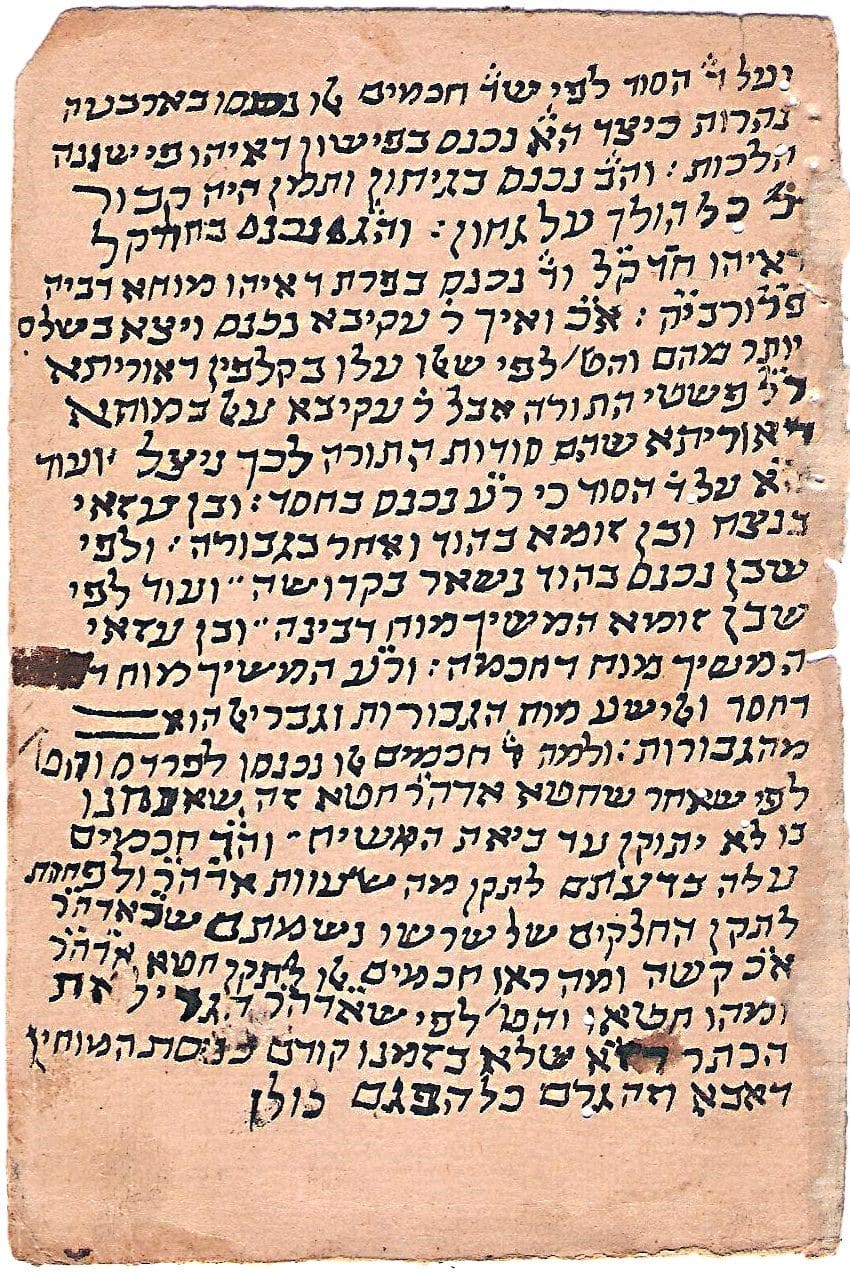 ועל ד״ הסוד לפי שד״ חכמים אלו נכנסו בארבעה
נהרות כיצד הא״ נכנס בפישון דאיהו פי ששנה
הלכות : והב״ נכנס בגיחון ותמן היה קבור
כל הולך על גחון : והג״ נכנס בחידקל
דאיהו חד קל וד״ נכנס בפרת דאיהו מוחא דביה
פו״ורבי״ה : א״כ ואיך ר׳ עקיבא נכנס ויצא בשלום
יותר מהם והט׳ לפי שאלו עלו בקלפין דאוריתא
ר״ל פשטי התורה אבל ר׳ עקיבא על במוחא
דאוריתא שהם סודות התורה לכך ניצל ועוד
ה״א על ד׳ הסוד כי ר״ע נכנס בחסד : ובן עזאי
בנצח ובן זומא בהוד ואחר בגבורה : ולפי
שבן נכנס בהוד נשאר בקדושה ״ ועוד לפי
שבן זומא המשיך מוח דבינה ״ ובן עזאי
המשיך מוח דחכמה : ור״ע המשיך מוח ד
דחסד ואלישע מוח הגבורות וגבריאל הוא
מהגבורות : ולמה ד׳ חכמים אלו נכנסו לפרדס והט׳
לפי שאחר שחטא אדה״ר חטא זה שאנחנו
בו לא יתוקן עד ביאת המשיח ״ והד״ חכמים
עלה בדעתם לתקן מה שעוות אדה״ר ולפחות
לתקן החלקים של שרשו נשמתם שבאדה״ר
א״כ קשה ומה ראו חכמים אלו לתקן חטא אדה״ר
ומהו חטאו והט׳ לפי שאדה״ר הגדיל את
הכתר דז״א שלא בזמנו קודם כניסת המוחין
דאבא וזה גרם כל הפגם כולו